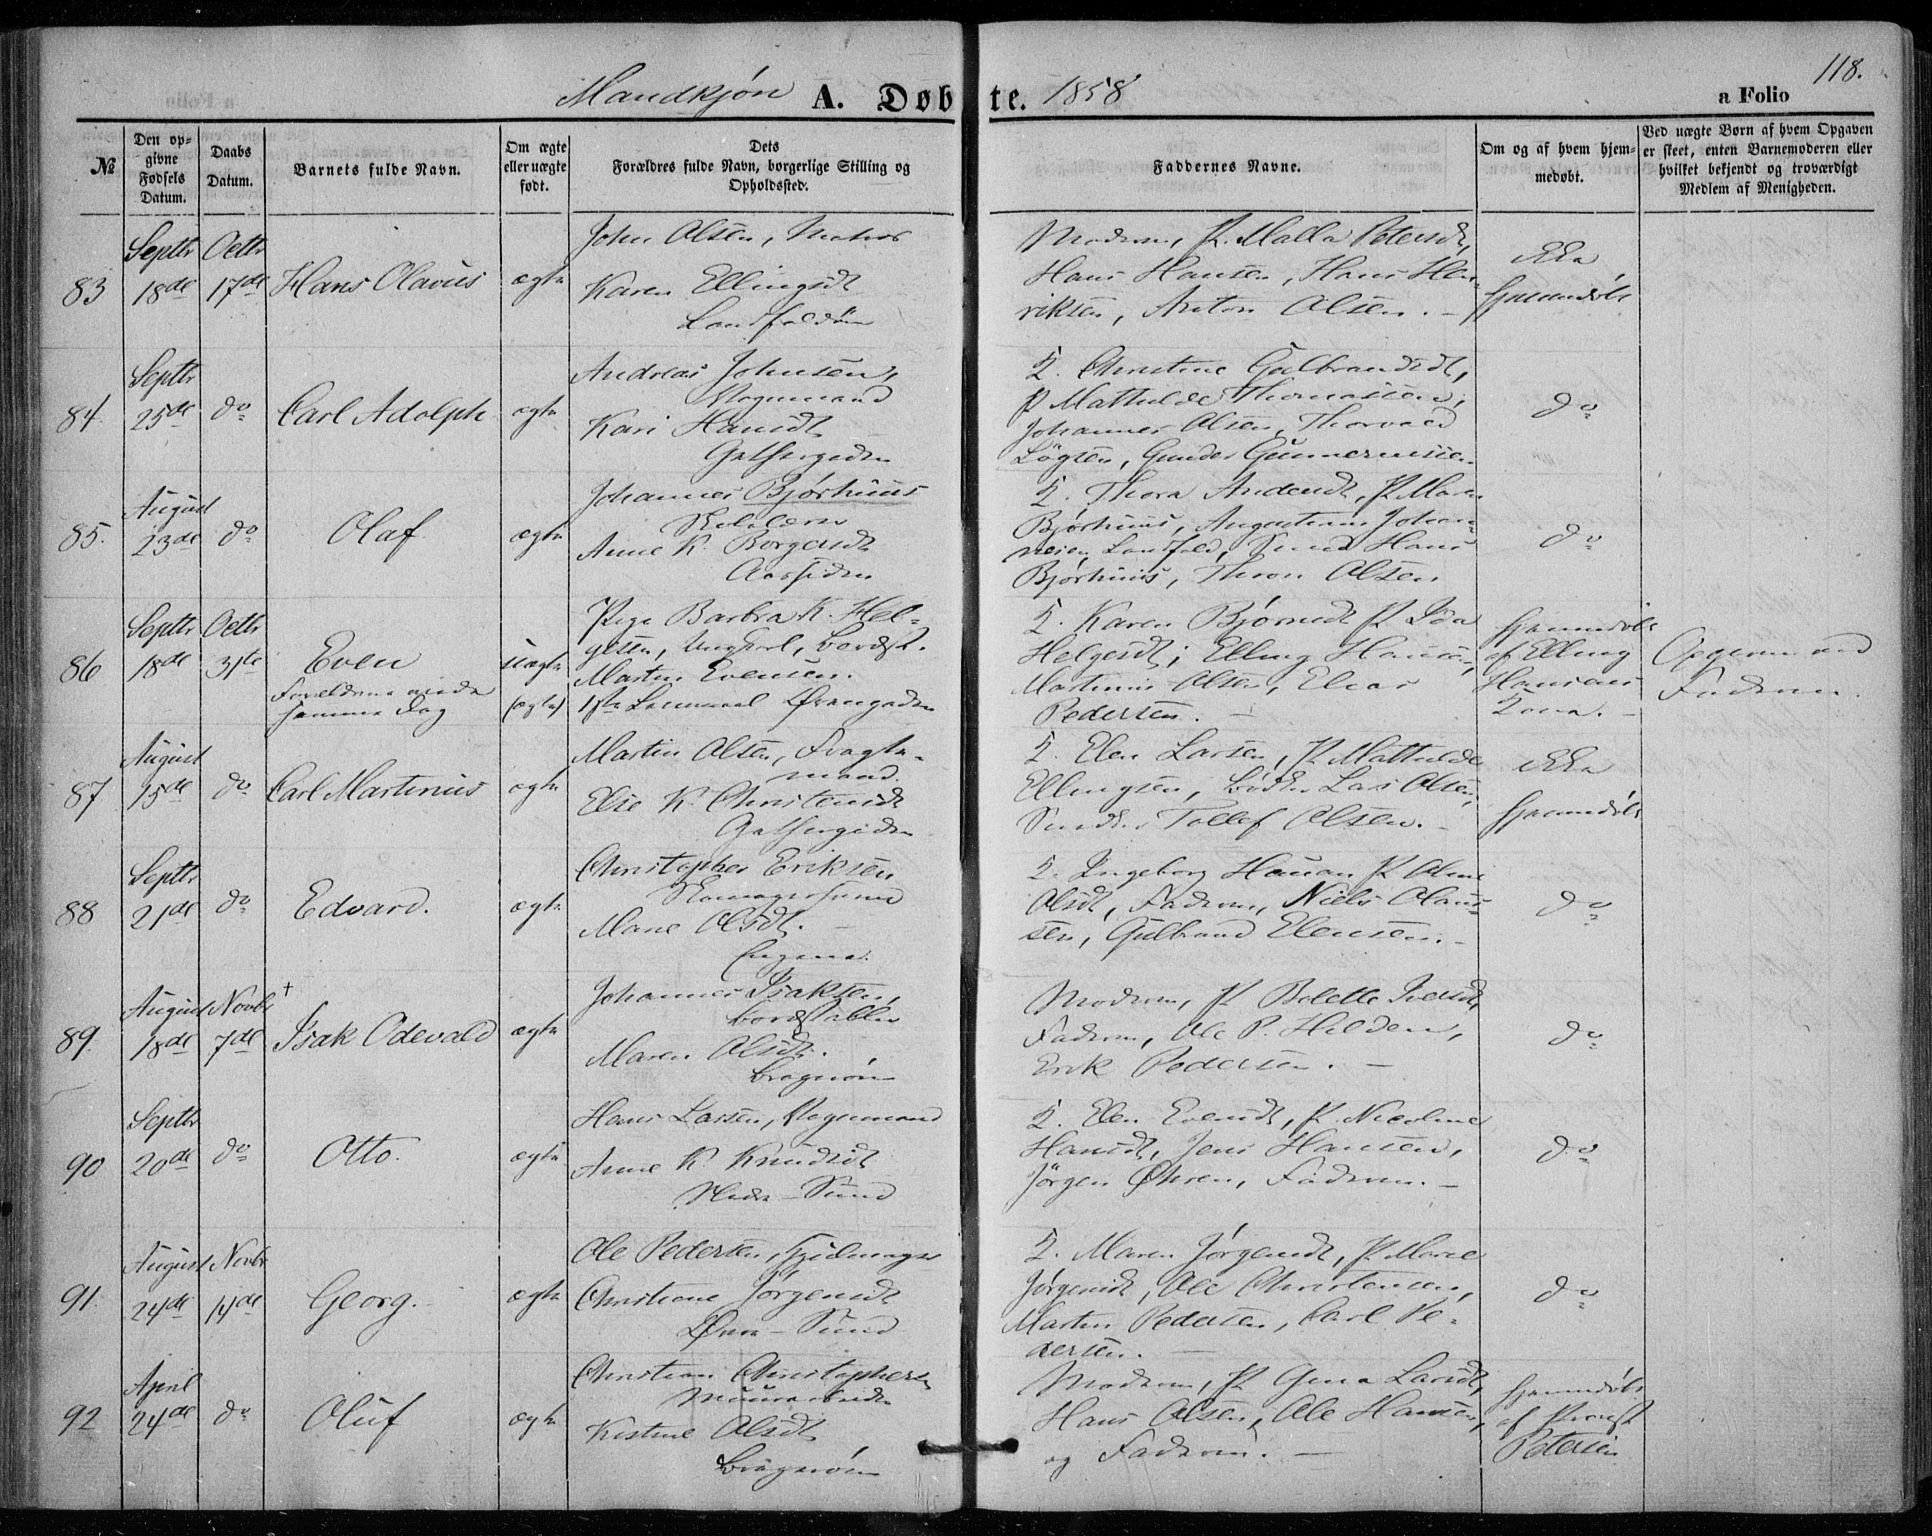 118.
Mandkjøn A. Døbte. 1858 a Folio
№
Den opgivne Fødsels Datum.
Daabs Datum.
Barnets fulde Navn.
Om ægte eller uægte født.
Dets Forældres fulde Navn, borgerlige Stilling og Opholdssted.
Faddernes Navne.
Om og af hvem hjemmedøbt.
Ved uægte Børn af hvem Opgaven er skeet, enten Barnemoderen eller hvilket bekjendt og troværdigt Medlem af Menigheden.
83
Septbr 18de
Octbr 17de
Hans Olavus
ægte
John Olsen,
Karen Ellingsdt
Moderen, P. Malla Petersdt,
Hans Hansen, Hans Hen-
riksen, Anton Olsen. -
ikke
hjemmedøbt
84.
Septbr 25de
do
Carl Adolph
ægte
Andreas Johnsen,
Vognmand
Kari Hansdt
K. Christine Gulbrandsdt,
P Mathilde Thomassen,
Johannes Olsen, Thorvald
Gunder
do
85.
August 23de
do
Olaf
ægte
Johannes Bjørhuus
Anne K. Borgersdt
Aassiden
K. Thora P Maren
Bjørhuus, Johan-
nesen Hans
Bjørhuus, Olsen
do
86
Septbr 18de
Octbr 31te
Even
Forældrene viede
samme Dag
uægte
(ægte)
Pige Barbra K. Hel-
gesen, Ungkarl,
Martin Evensen.
1ste
K. Karen Bjørnsdt P Ida
Helgesdt, Elling Hansen,
Martinius Olsen, Elias
Pedersen. -
hjemmedøbt
af Elling
Hansens
Kona. -
Opgivn ved
Faderen.
87
August 15de
do
Carl Martinius
ægte
Martin Olsen, Fragte-
mand.
Elise K. Christensdt
K. Elen Larsen, P Mathilde
Ellingsen, Bødker Lars Olsen,
Tollef Olsen. -
ikke
hjemmedøbt
88
Septbr 21de
do
Edvard.
ægte
Christopher Eriksen
Marie Olsdt. -
Engene.
K. Ingeborg P
Olsdt, Faderen, Niels Olaus-
sen, Gulbrand Elensen. -
do
89.
August 18de
Novbr 7de
+
Isak Odevald
ægte
Johannes Isaksen,
Maren Olsdt.
Bragernæs
Moderen, P Bolette Iversdt,
Faderen, Ole P. Holden,
Erik Pedersen. -
do
90
Septbr 20de
do
Otto.
ægte
Hans Larsen, Vognmand
Anne K. Knudsdt
Nedre-Sund
K. Elen Evensdt, P. Nicoline
Hansdt, Jens Hansen,
Jörgen Øhren, Faderen. -
do
91.
August 24de
Novbr 14de
Georg.
ægte
Ole Pedersen, Hjulmager
Christiane Jørgensdt
Øvre-Sund
K. Maren Jørgensdt, P Marie
Jørgensdt, Ole Christensen,
Martin Pedersen, Carl Pe-
dersen. -
do
92
April 24de
do
Oluf
ægte
Christian Christophersen
Muurarbeider
Kirstine Olsdt
Bragernæs
Moderen, P Gina Larsdt,
Hans Olsen, Ole Hansen,
og Faderen. -
hjemmedøbt
af Provst
Petersen